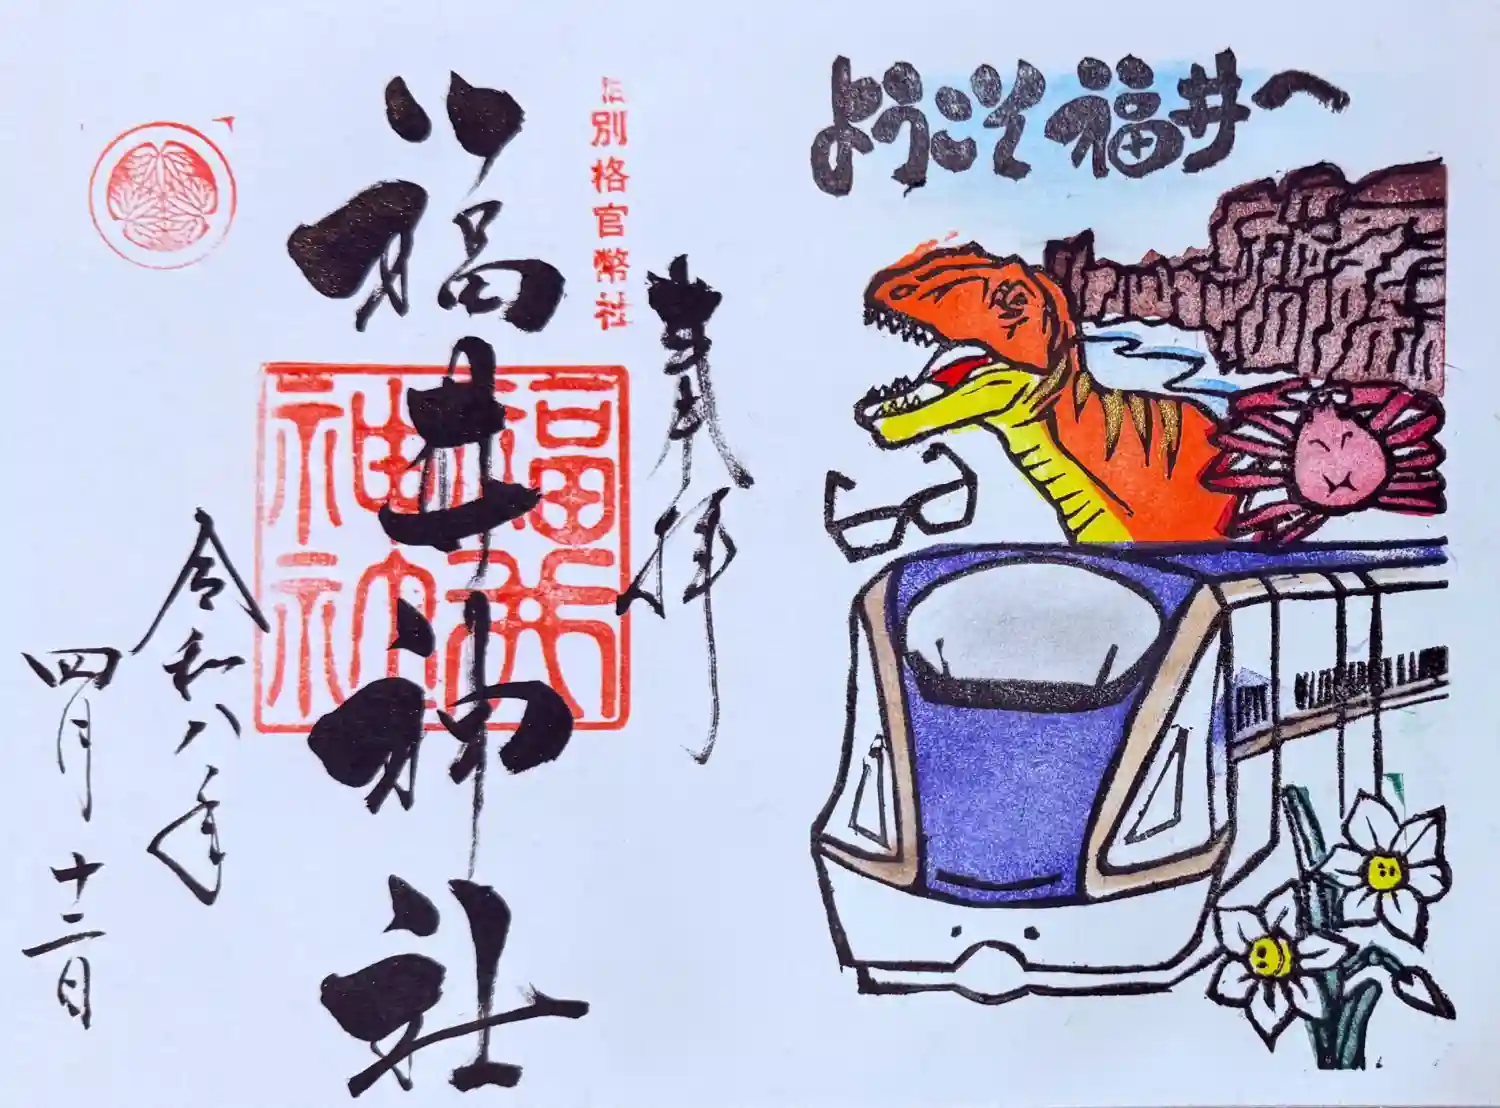 ようこそ福井へ
奉拝
旧別格官幣社
福井神社
福井神社
令和八年
四月十二日